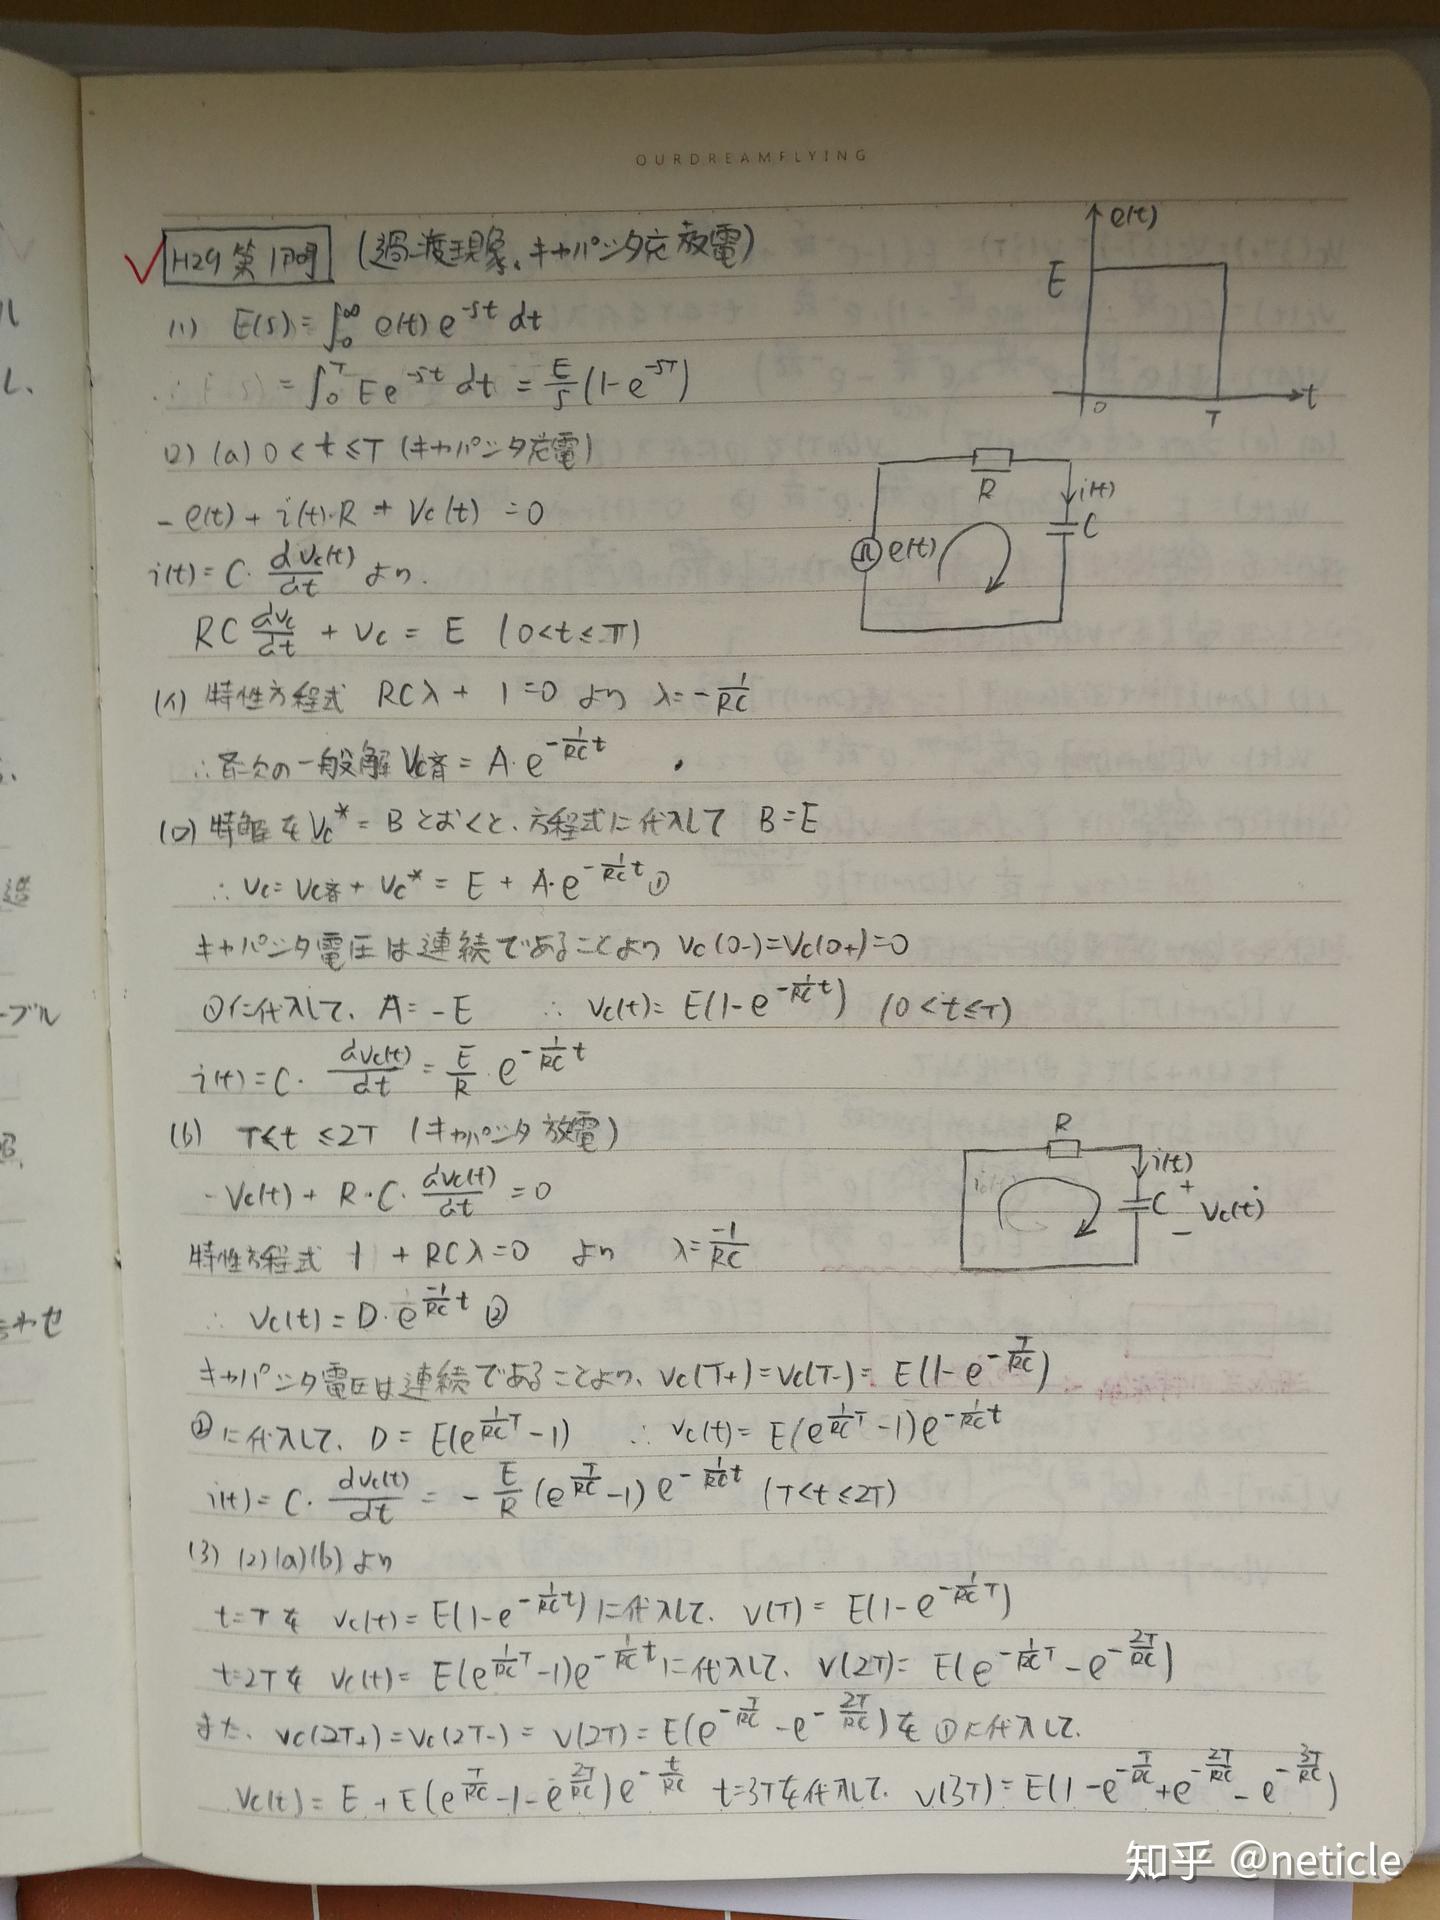 OURDREAMFLYING
H29 第1問 (過渡現象、キャパシタ充放電)
e(t)
E
0 T t
(1) E(s) = ∫₀^∞ e(t) e^{-st} dt
∴ E(s) = ∫₀^T E e^{-st} dt = E/s (1-e^{-sT})
(2) (a) 0 < t ≤ T (キャパシタ充電)
R
i(t)
C
e(t)
- e(t) + i(t)·R + Vc(t) = 0
i(t) = C· dVc(t)/dt より.
RC dVc/dt + Vc = E (0<t≤T)
(イ) 特性方程式 RCλ + 1 = 0 より λ = -1/RC
∴ 斉次の一般解 Vc斉 = A·e^{-1/RC t}
(ロ) 特解を Vc* = B とおくと、方程式に代入して B = E
∴ Vc = Vc斉 + Vc* = E + A·e^{-1/RC t} ①
キャパシタ電圧は連続であることより Vc(0-) = Vc(0+) = 0
①に代入して、A = -E ∴ Vc(t) = E(1-e^{-1/RC t}) (0<t≤T)
i(t) = C· dVc(t)/dt = E/R · e^{-1/RC t}
(b) T<t ≤2T (キャパシタ放電)
R
i(t)
C + Vc(t) -
- Vc(t) + R·C· dVc(t)/dt = 0
特性方程式 1 + RCλ = 0 より λ = -1/RC
∴ Vc(t) = D·e^{-1/RC t} ②
キャパシタ電圧は連続であることより、Vc(T+) = Vc(T-) = E(1-e^{-T/RC})
②に代入して、D = E(e^{1/RC T} -1) ∴ Vc(t) = E(e^{1/RC T} -1)e^{-1/RC t}
i(t) = C· dVc(t)/dt = - E/R (e^{T/RC} -1) e^{-1/RC t} (T<t≤2T)
(3) (2)(a)(b)より
t=Tを Vc(t) = E(1-e^{-1/RC t})に代入して、V(T) = E(1-e^{-1/RC T})
t=2Tを Vc(t) = E(e^{1/RC T} -1)e^{-1/RC t}に代入して、V(2T) = E(e^{-1/RC T} - e^{-2T/RC})
また、Vc(2T+) = Vc(2T-) = V(2T) = E(e^{-T/RC} - e^{-2T/RC})を①に代入して、
Vc(t) = E + E(e^{T/RC} -1-e^{2T/RC})e^{-t/RC} t=3Tを代入して、V(3T) = E(1-e^{-T/RC} + e^{-2T/RC} - e^{-3T/RC})
知乎 @neticle